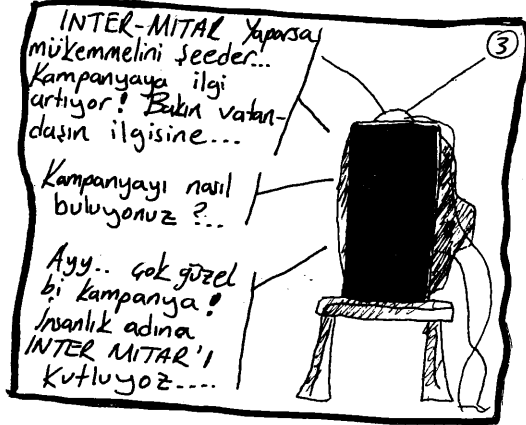 INTER-MITAR Yaparsa
mükemmelini şeeder...
Kampanyaya ilgi
artıyor! Bakın vatan-
daşın ilgisine...
3
Kampanyayı nasıl
buluyonuz ?...
Ayy.. çok güzel
bi kampanya!
İnsanlık adına
INTER MITAR'I
Kutluyoz....